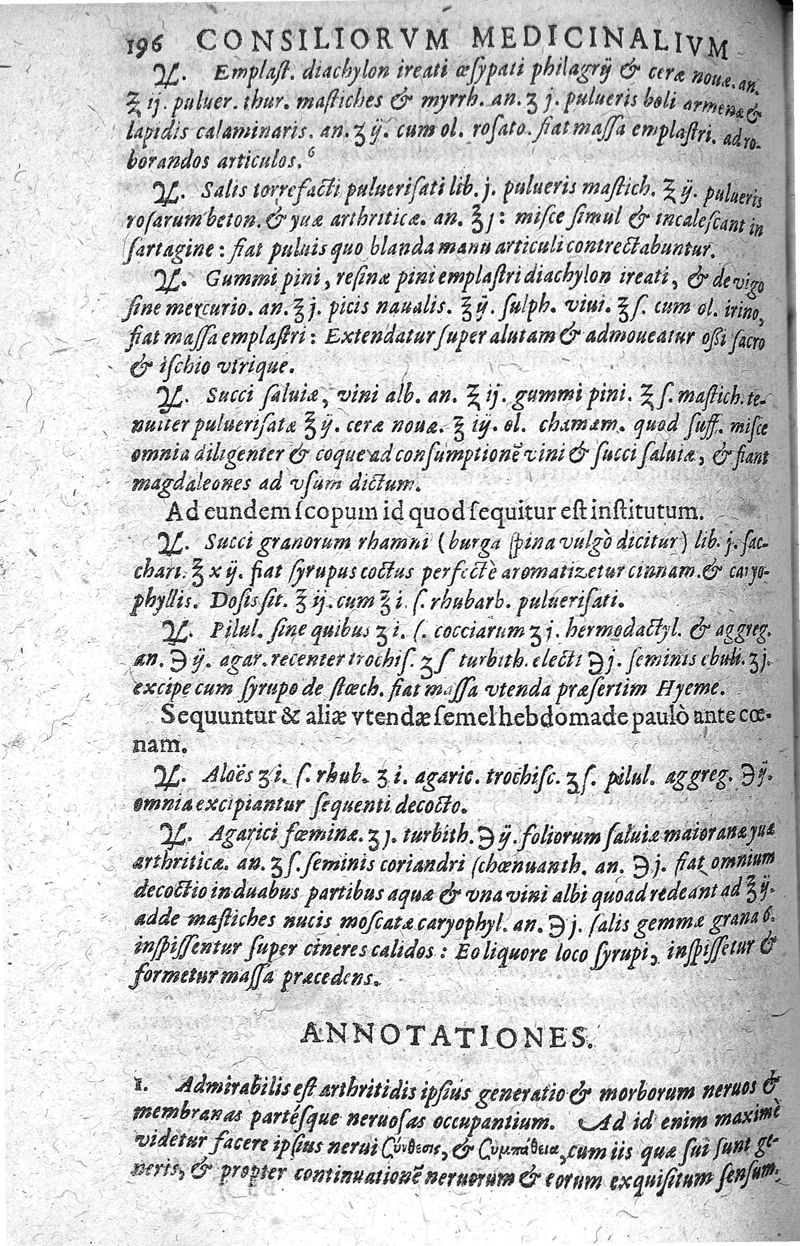 196 CONSILIORVM MEDICINALIVM
℞. Emplast. diachylon ireati œsypati philagrij & ceræ nouæ. an.
℥ ij. puluer. thur. mastiches & myrrh. an. ʒ j. pulueris boli armenæ &
lapidis calaminaris. an. ʒ ij. cum ol. rosato. fiat massa emplastri. ad ro-
borandos articulos.⁶
℞. Salis torrefacti puluerisati lib. j. pulueris mastich. ℥ ij. pulueris
rosarum beton. & yuæ arthriticæ. an. ℥ j: misce simul & incalescant in
sartagine: fiat puluis quo blanda manu articuli contrectabuntur.
℞. Gummi pini, resinæ pini emplastri diachylon ireati, & de vigo
sine mercurio. an. ℥ j. picis naualis. ℥ ij. sulph. viui. ℥ s. cum ol. irino,
fiat massa emplastri: Extendatur super alutam & admoueatur ossi sacro
& ischio vtrique.
℞. Succi saluiæ, vini alb. an. ℥ ij. gummi pini. ℥ s. mastich. te-
nuiter puluerisatæ ℥ ij. ceræ nouæ. ℥ iij. ol. chamæm. quod suff. misce
omnia diligenter & coque ad consumptionẽ vini & succi saluiæ, & fiant
magdaleones ad vsum dictum.
Ad eundem scopum id quod sequitur est institutum.
℞. Succi granorum rhamni (burga spina vulgò dicitur) lib. j. sac-
chari. ℥ x ij. fiat syrupus coctus perfectè aromatizetur cinnam. & caryo-
phyllis. Dosis sit. ℥ ij. cum ℥ i. s. rhubarb. puluerisati.
℞. Pilul. sine quibus ʒ i. s. cocciarum ʒ j. hermodactyl. & aggreg.
an. ℈ ij. agar. recenter trochis. ʒ s turbith. electi ℈ j. seminis ebuli. ʒ j.
excipe cum syrupo de stœch. fiat massa vtenda præsertim Hyeme.
Sequuntur & aliæ vtendæ semel hebdomade paulò ante cœ-
nam.
℞. Aloës ʒ i. s. rhub. ʒ i. agaric. trochisc. ʒ s. pilul. aggreg. ℈ ij.
omnia excipiantur sequenti decocto.
℞. Agarici fœminæ. ʒ j. turbith. ℈ ij. foliorum saluiæ maioranæ yuæ
arthriticæ. an. ʒ s. seminis coriandri schœnuanth. an. ℈ j. fiat omnium
decoctio in duabus partibus aquæ & vna vini albi quoad redeant ad ℥ ij.
adde mastiches nucis moscatæ caryophyl. an. ℈ j. salis gemmæ grana 6.
inspissentur super cineres calidos: Eo liquore loco syrupi, inspissetur &
formetur massa præcedens.
ANNOTATIONES.
1. Admirabilis est arthritidis ipsius generatio & morborum neruos &
membranas partésque neruosas occupantium. Ad id enim maximè
videtur facere ipsius nerui σύνθεσις, & συμπάθεια, cum iis quæ sui sunt ge-
neris, & propter continuationẽ neruorum & eorum exquisitum sensum.